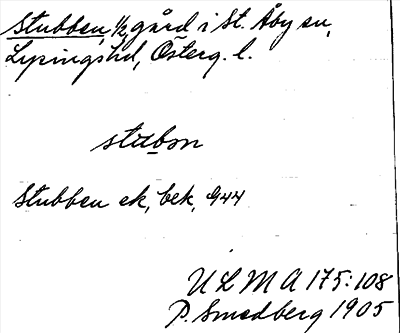 Stubben, 1/2 gård i St. Åby sn,
Lysings hd, Österg. l.
stubm
Stubben ek, bek, G44
ULMA 175:108
P. Smedberg 1905